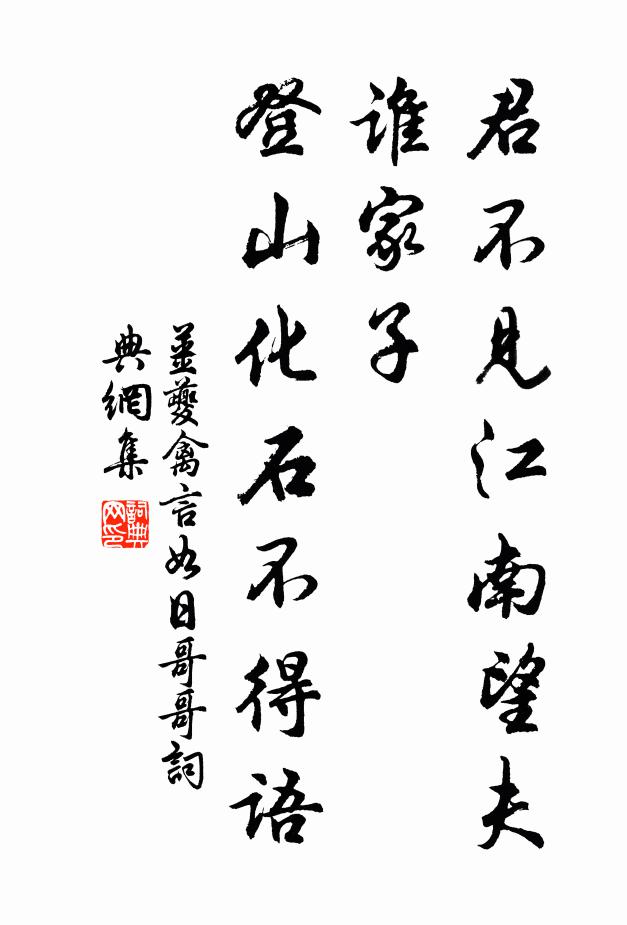 君不見江南望夫
誰家子
登山化石不得語
薑夔禽言如日哥哥詞
典網集
詞典网印